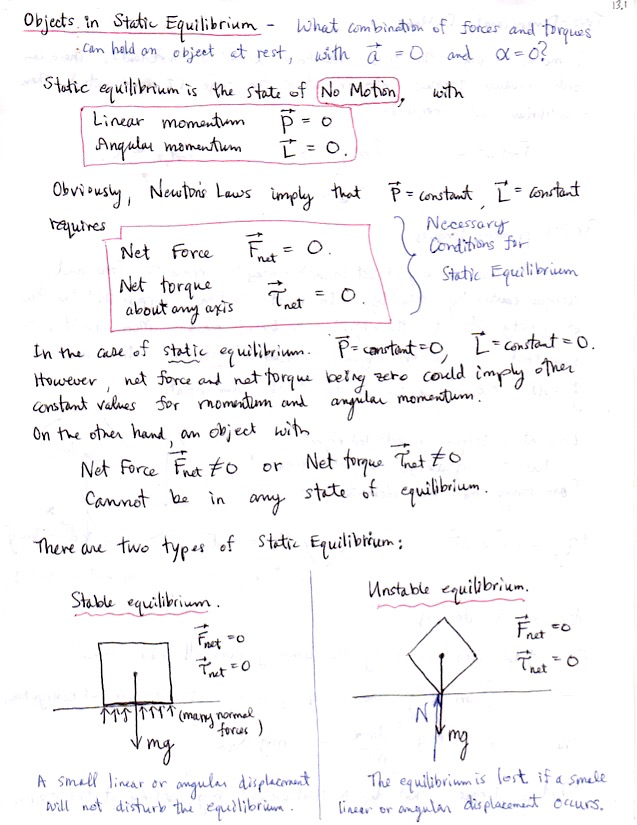 13.1
Objects in Static Equilibrium - What combination of forces and torques
can hold an object at rest, with a⃗ = 0 and α = 0?
Static equilibrium is the state of No Motion, with
Linear momentum P⃗ = 0
Angular momentum L⃗ = 0.
Obviously, Newton's Laws imply that P⃗ = constant, L⃗ = constant
requires
Net Force F⃗net = 0.
Net torque
about any axis τ⃗net = 0.
Necessary
Conditions for
Static Equilibrium
In the case of static equilibrium. P⃗ = constant = 0, L⃗ = constant = 0.
However, net force and net torque being zero could imply other
constant values for momentum and angular momentum.
On the other hand, an object with
Net Force F⃗net ≠ 0 or Net torque τ⃗net ≠ 0
Cannot be in any state of equilibrium.
There are two types of Static Equilibrium:
Stable equilibrium.
F⃗net = 0
τ⃗net = 0
(many normal
forces)
mg
A small linear or angular displacement
will not disturb the equilibrium.
Unstable equilibrium.
F⃗net = 0
τ⃗net = 0
N
mg
The equilibrium is lost if a small
linear or angular displacement occurs.